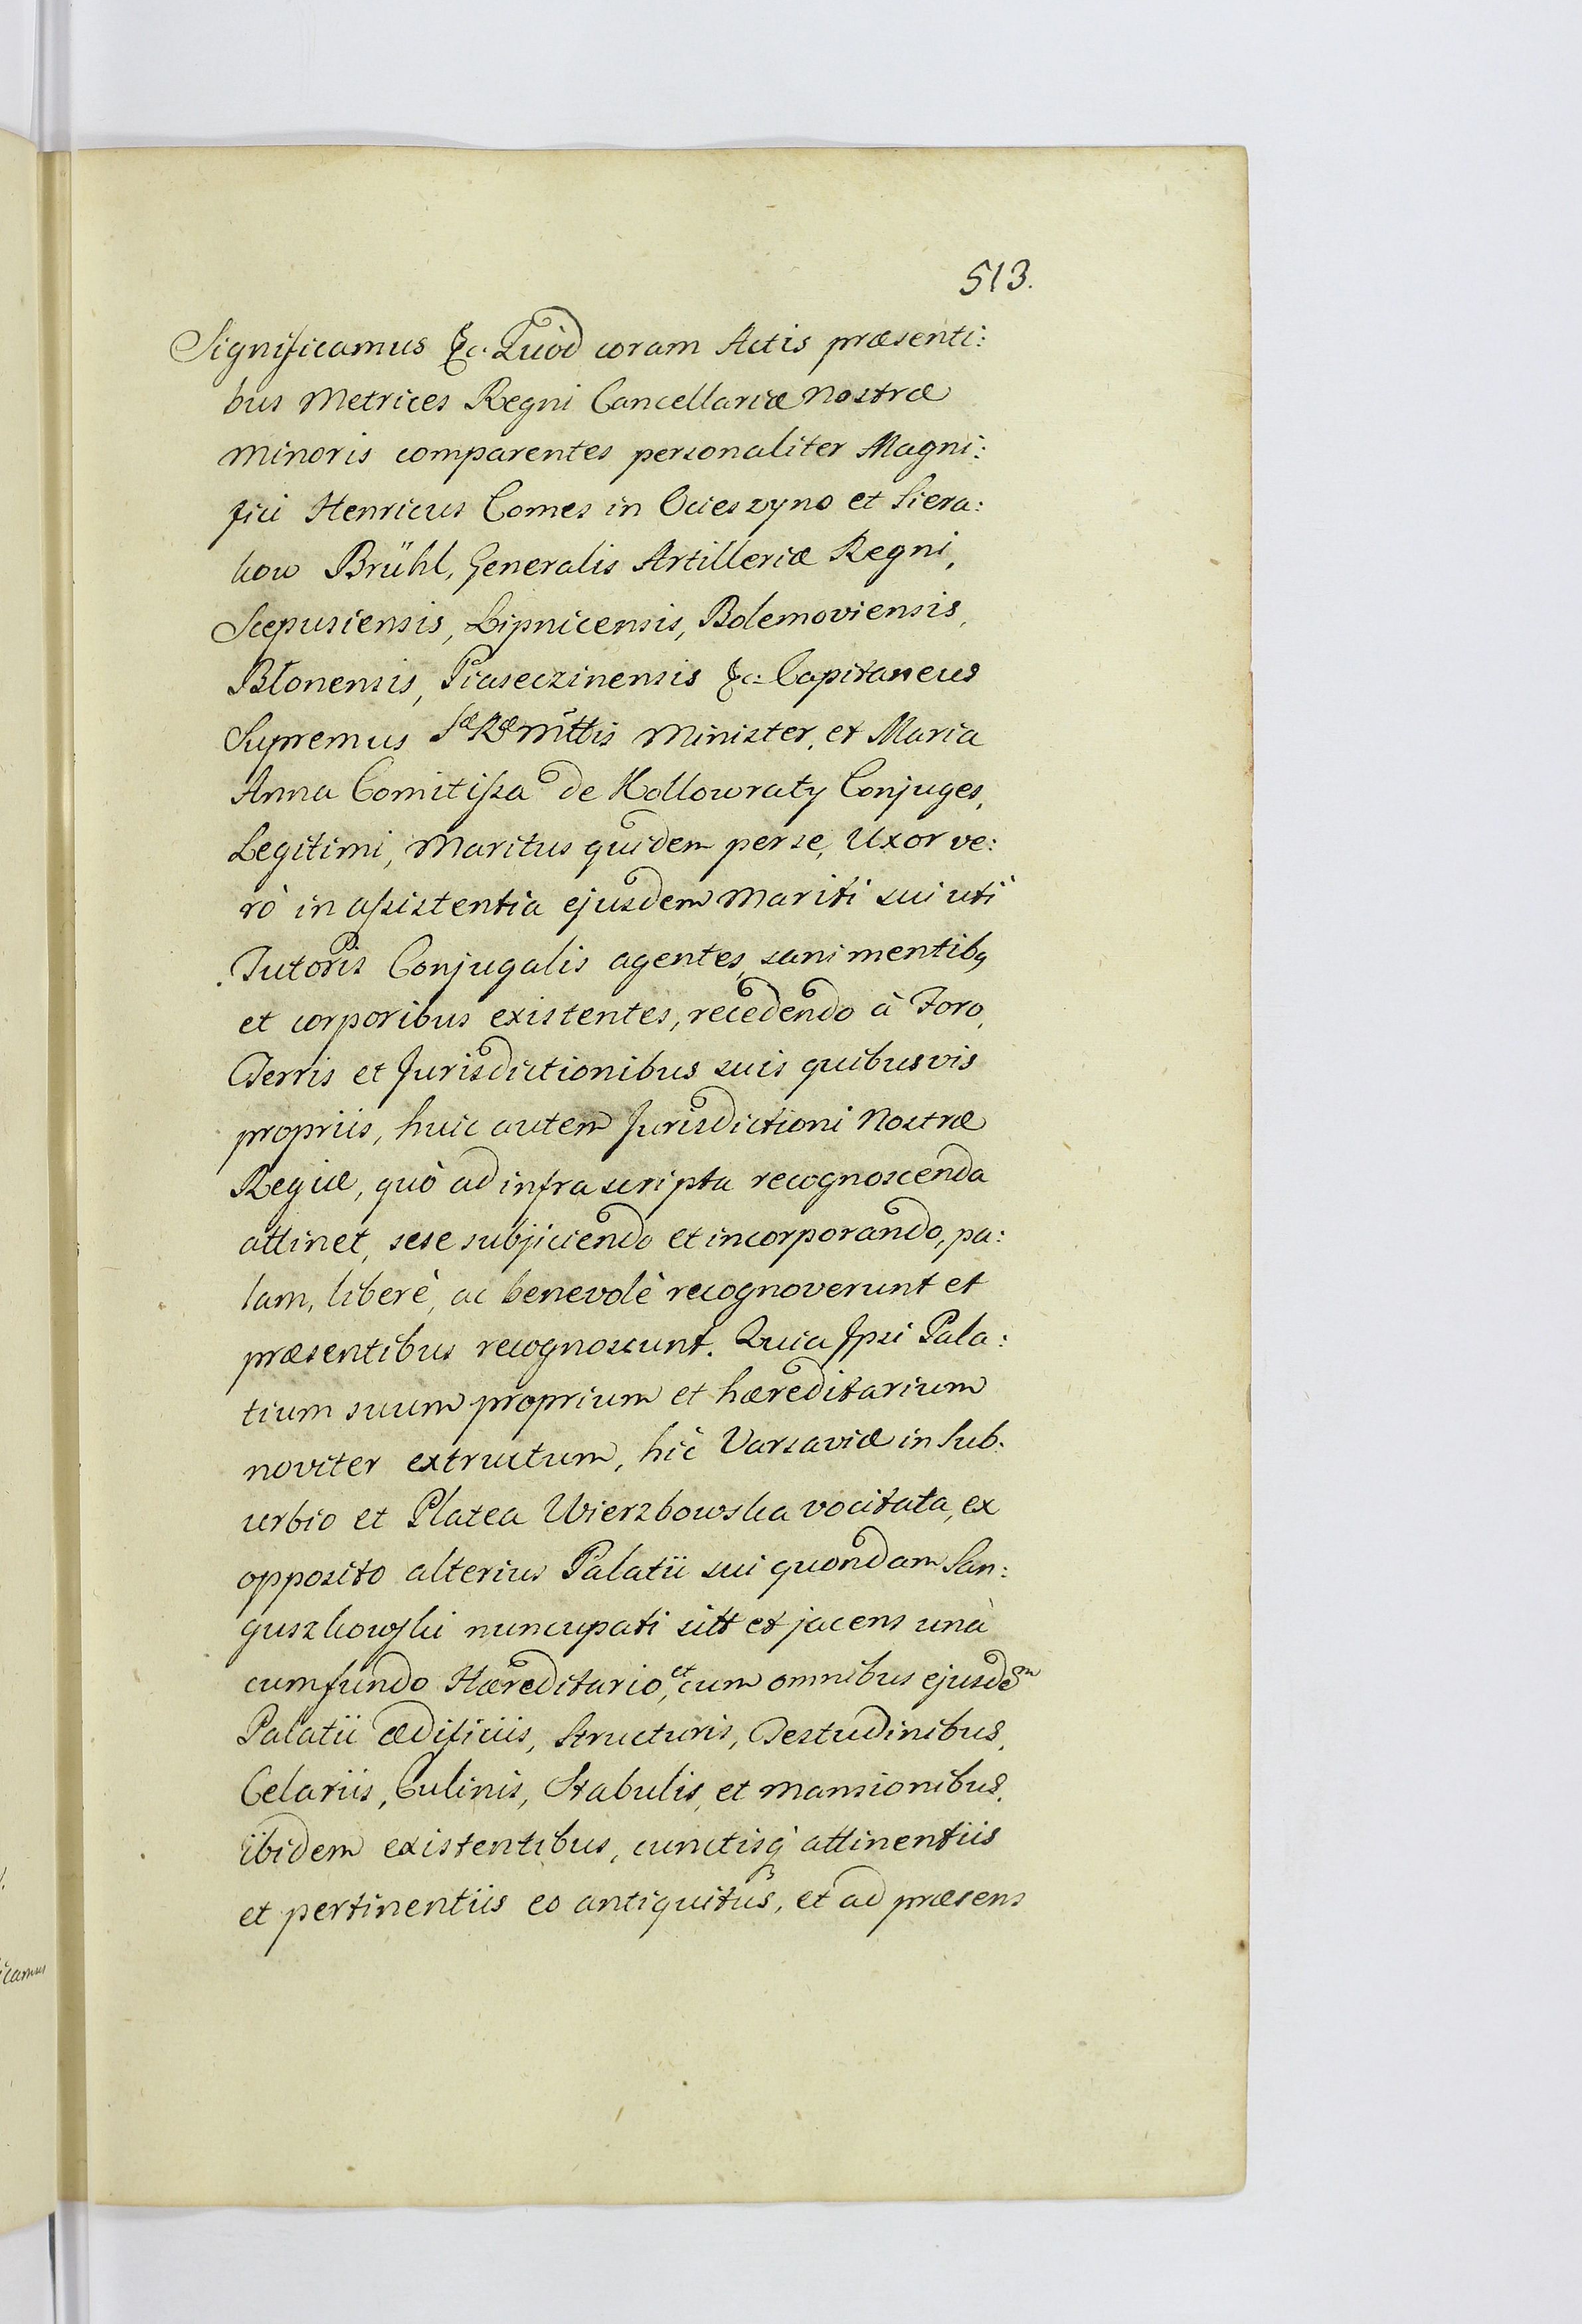 513.
Significamus &c. Quòd coram Actis præsenti:
bus Metrices Regni Cancellariæ Nostræ
Minoris comparentes personaliter Magni:
fici Henricus Comes in Ocieszyno et Siera:
kow Brühl, Generalis Artilleriæ Regni,
Scepusiensis, Lipnicensis, Bolemoviensis,
Błonensis, Piaseczinensis &c: Capitaneus
Supremus Sæ Ræ Mttis Minister, et Maria
Anna Comitissa de Kollowraty Conjuges,
Legitimi, Maritus quidem per se, Uxor ve:
rò in assistentia ejusdem Mariti sui uti
Tutoris Conjugalis agentes, sani mentibq
et corporibus existentes, recedendo à Foro,
Terris et Jurisdictionibus suis quibusvis
propriis, huic autem Jurisdictioni Nostræ
Regiæ, quò ad infra scripta recognoscenda
attinet, sese subjiciendo et incorporando, pa:
lam, liberè, ac benevolè recognoverunt et
præsentibus recognoscunt. Quia Ipsi Pala:
tium suum proprium et hæreditarium
noviter extructum, hìc Varsaviæ in Sub:
urbio et Platea Wierzbowska vocitata, ex
opposito alterius Palatii sui quondam San:
guszkowski nuncupati sitt et jacens unà
cum fundo Hæreditario, et cum omnibus ejusdem
Palatii ædificiis, Structuris, Testudinibus,
Celariis, Culinis, Stabulis, et Mansionibus,
ibidem existentibus, cunctisq attinentiis
et pertinentiis eo antiquitus, et ad præsens
icamus